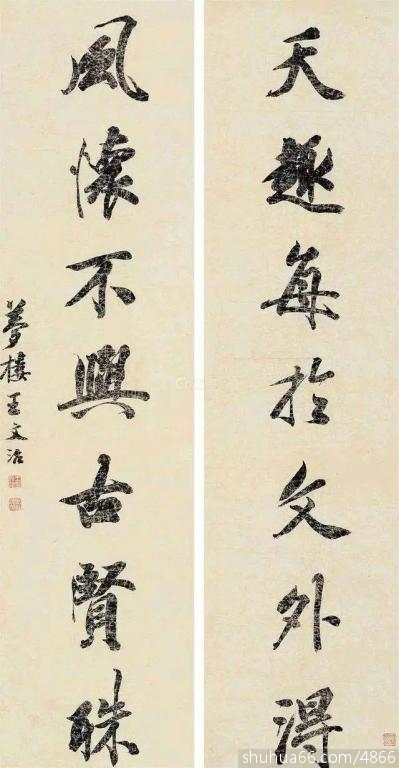 天趣每於文外得
風懷不與古賢殊
夢樓王文治
shuhua66.com/4866